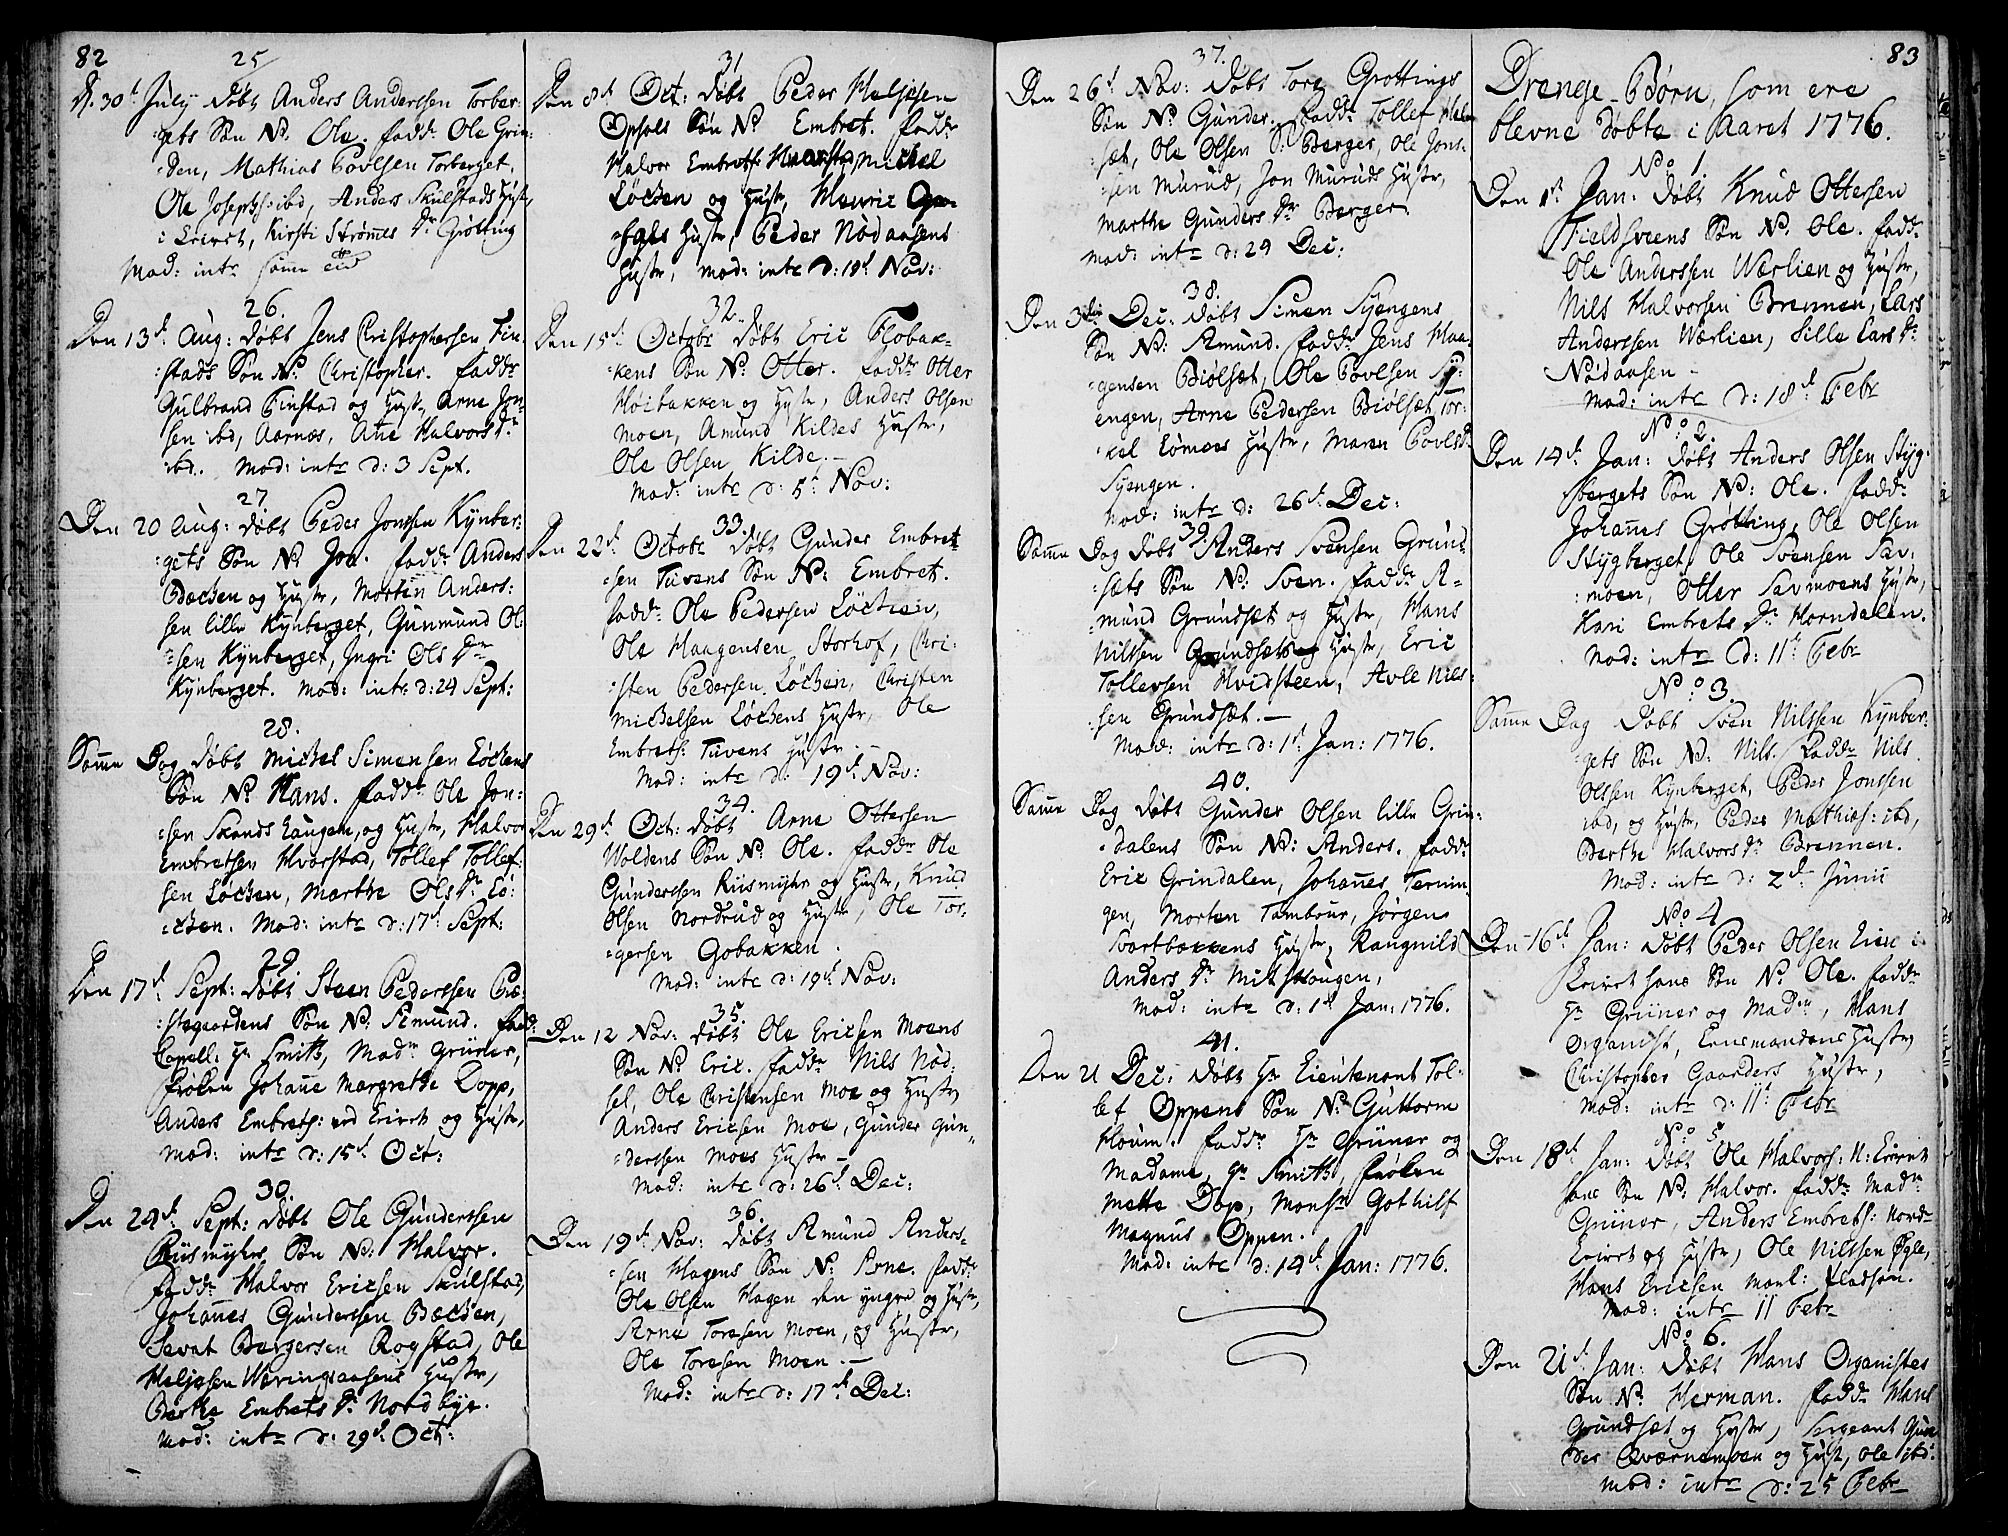 82
25
D. 30t July døbt Anders Anderssen Torber:
:gets Søn No. Ole. fadd: Ole Grin:
:den, Mathias Povlsen Torberget,
Ole Josephs: ibd, Anders Skulstads Hustr,
i Leiret, Kirsti Strømes Dr Grøtting
Mod: intr samme tid
26.
Den 13d. Aug: døbt Jens Christophersen Fin:
:stads Søn No. Christopher. fadd:
Gulbrand Finstad og Hust, Arne Jon:
sen ibd, Aarnæs, Ane Halvors Dr
ibd. Mod: intr d: 3 Sept.
27
Den 20 Aug: døbt Peder Jonssen Kynber:
:gets Søn No Jon. fadd: Anders
Bæcken og Hustr, Morten Anders:
sen lille Kynberget, Gunmund Ol:
:sen Kynberget, Ingri Ols Dr
Kynberget. Mod: intr d: 24 Sept:
28.
Samme Dag døbt Michel Simensen Løckens
Søn No Hans. fadd: Ole Jon:
:sen Skands Haugen, og Hustr, Halvor
Embretsen Hvorstad, Tollef Tollef:
sen Løcken, Marthe Ols Dr Lø:
:cken. Mod: intr d: 17d Sept:
29
Den 17d. Sept: døbt Steen Pederssen Præ:
:stegaardens Søn No: Amund. fadd:
Capell: Hr Smith, Madm Grüner,
frøken Johanne Margrethe Dopp,
Anders Embrets: ved Leiret og Hustr,
Mod: intr d: 15d Oct:
30.
Den 24d. Sept: døbt Ole Gunderssen
Riismyhrs Søn No: Halvor.
fadd: Halvor Ericsen Skulstad,
Johannes Gunderssen Bæcken,
Sevat Bergersen Rogstad, Ole
Heljesen Wæringsaasens Hustr,
Berthe Embrets Dr Nordbye.
Mod: intr d: 29d. Oct:
31
Den 8d Oct: døbt Peder Heljesen
Opsals Søn No Embret. fadd:
Halvor Embrets: Hvarstad, Michel
Løcken og Hustr, Mauritz Op:
:sals Hustr, Peder Nødaasens
Hustr, Mod: intr d: 19d Nov:
32.
Den 15d. Octobr døbt Eric Flobak:
:kens Søn No. Otter. fadd: Otter
Høibakken og Hustr, Anders Olsen
Moen, Amund Kildes Hustr,
Ole Olsen Kilde. —
Mod: intr d: 5d Nov:
33.
Den 22d. Octobr døbt Gunder Embret
:sen Tuvens Søn No: Embret.
fadd: Ole Pedersen Løcken,
Ole Haagensen Storhof, Chri:
:sten Pedersen Løcken, Christen
Michelsen Løckens Hustr, Ole
Embrets: Tuvens Hustr. —
Mod: intr d: 19d Nov:
34.
Den 29d Oct: døbt Arne Ottersen
Woldens Søn No. Ole. fadd: Ole
Gunderssen Riismyhr og Hustr, Knud
Olsen Nordrud og Hustr, Ole Tor:
:gersen Gobakken.
Mod: intr d: 19d Nov:
35.
Den 12 Nov: døbt Ole Ericsen Moens
Søn No Eric. fadd: Nils Nød:
sel, Ole Christensen Moe og Hustr
Anders Ericsen Moe, Gunder Gun,
:derssen Moes Hustr —
Mod: intr d: 26d Dec:
36.
Den 19d. Nov: døbt Amund Anders:
:sen Hagens Søn No. Arne. fadd:
Ole Olsen Hagen den yngre og Hustr,
Arne Toresen Moen, og Hustr,
Ole Toresen Moen. —
Mod: intr d: 17d Dec:
37.
Den 26d Nov: døbt Tore Grøttings
Søn No Gunder. fadd: Tollef Hel:
:set, Ole Olsen S: Berger, Ole Jons:
:sen Murud, Jon Muruds Hustr,
Marthe Gunders Dr Berger.
Mod: intr d: 29 Dec:
38.
Den 3die Dec: døbt Simen Syengens
Søn No: Amund. fadd: Jens Haa:
:gensen Biølset, Ole Povlsen Sy:
engen, Arne Pedersen Biølset, Tor:
:kel Lømoes Hustr, Maren Povlsdr
Syengen.
Mod: intr d: 26d Dec:
39.
Samme Dag døbt Anders Svensen Grund
:sets Søn No: Sven. fadd: A=
:mund Grundset og Hustr, Hans
Nilssen Grundset og Hustr, Eric
Tollevsen Hvidsteen, Avle Nils:
:sen Grundset. —
Mod: intr d: 1d Jan: 1776.
40.
Samme Dag døbt Gunder Olsen lille Grin:
:dalens Søn No: Anders. fadd:
Eric Grindalen, Johannes Ternin:
gen, Morten Tambour, Jørgens
Svartbækkens Hustr, Rangnild
Anders Dr Mikshaugen,
Mod: intr d: 1d Jan: 1776.
41.
Den 21 Dec: døbt Hr Lieutenant Tol:
lef Oppens Søn No: Guttorm
Houm. fadd: Hr Grüner og
Madame, Hr Smith, frøken
Mette Dop, Monsr Gothilf
Magnus Oppen.
Mod: intr d: 14d. Jan: 1776.
83
Drenge-Børn, som ere
blevne døbte i Aaret 1776.
No. 1
Den 1d Jan: døbt Knud Ottersen
Fieldsveens Søn No: Ole. fadd:
Ole Anderssen Wærlien og Hustr,
Nils Halvorsen Brennen, Lars
Anderssen Wærlien, Sille Lars Dr
Nødaasen —
Mod: intr d: 18d Febr
No. 2.
Den 14d. Jan: døbt Anders Olsen Styg:
:bergets Søn No: Ole. fadd:
Johannes Grøtting, Ole Olsen
Stygberget, Ole Svensen Sav:
:moen, Otter Savmoens Hustr,
Kari Embrets Dr Horndalen.
Mod: intr d: 11d Febr
No. 3.
Samme Dag døbt Sven Nilssen Kynber:
:gets Søn No: Nils. fadd: Nils
Olssen Kynberget, Peder Jonssen
ibd, og Hustr, Peder Mathies: ibd,
Berthe Halvors Dr Brennen.
Mod: intr d: 2d Junii
No. 4
Den 16d. Jan: døbt Peder Olsen Lien i
Leiret hans Søn No. Ole. fadd:
Hr Grüner og Madm, Hans
Organist, Lensmandens Hustr,
Christopher Gaarders Hustr,
Mod: intr d: 11d Febr
No. 5
Den 18d. Jan: døbt Ole Halvors: N: Leiret
hans Søn No: Halvor. fadd: Madm
Grüner, Anders Embrets: Nord-
Leiret og Hustr, Ole Nilssen Øgle,
Hans Ericsen Monk: Pladsen.
Mod: intr 11 Febr
No. 6.
Den 21d. Jan: døbt Hans Organistes
Søn No. Herman. fadd: Hans
Grundset og Hustr, Sergeant Gun
der Qværnemoen og Hust, Ole ibd:
Mod: intr d: 25 Febr